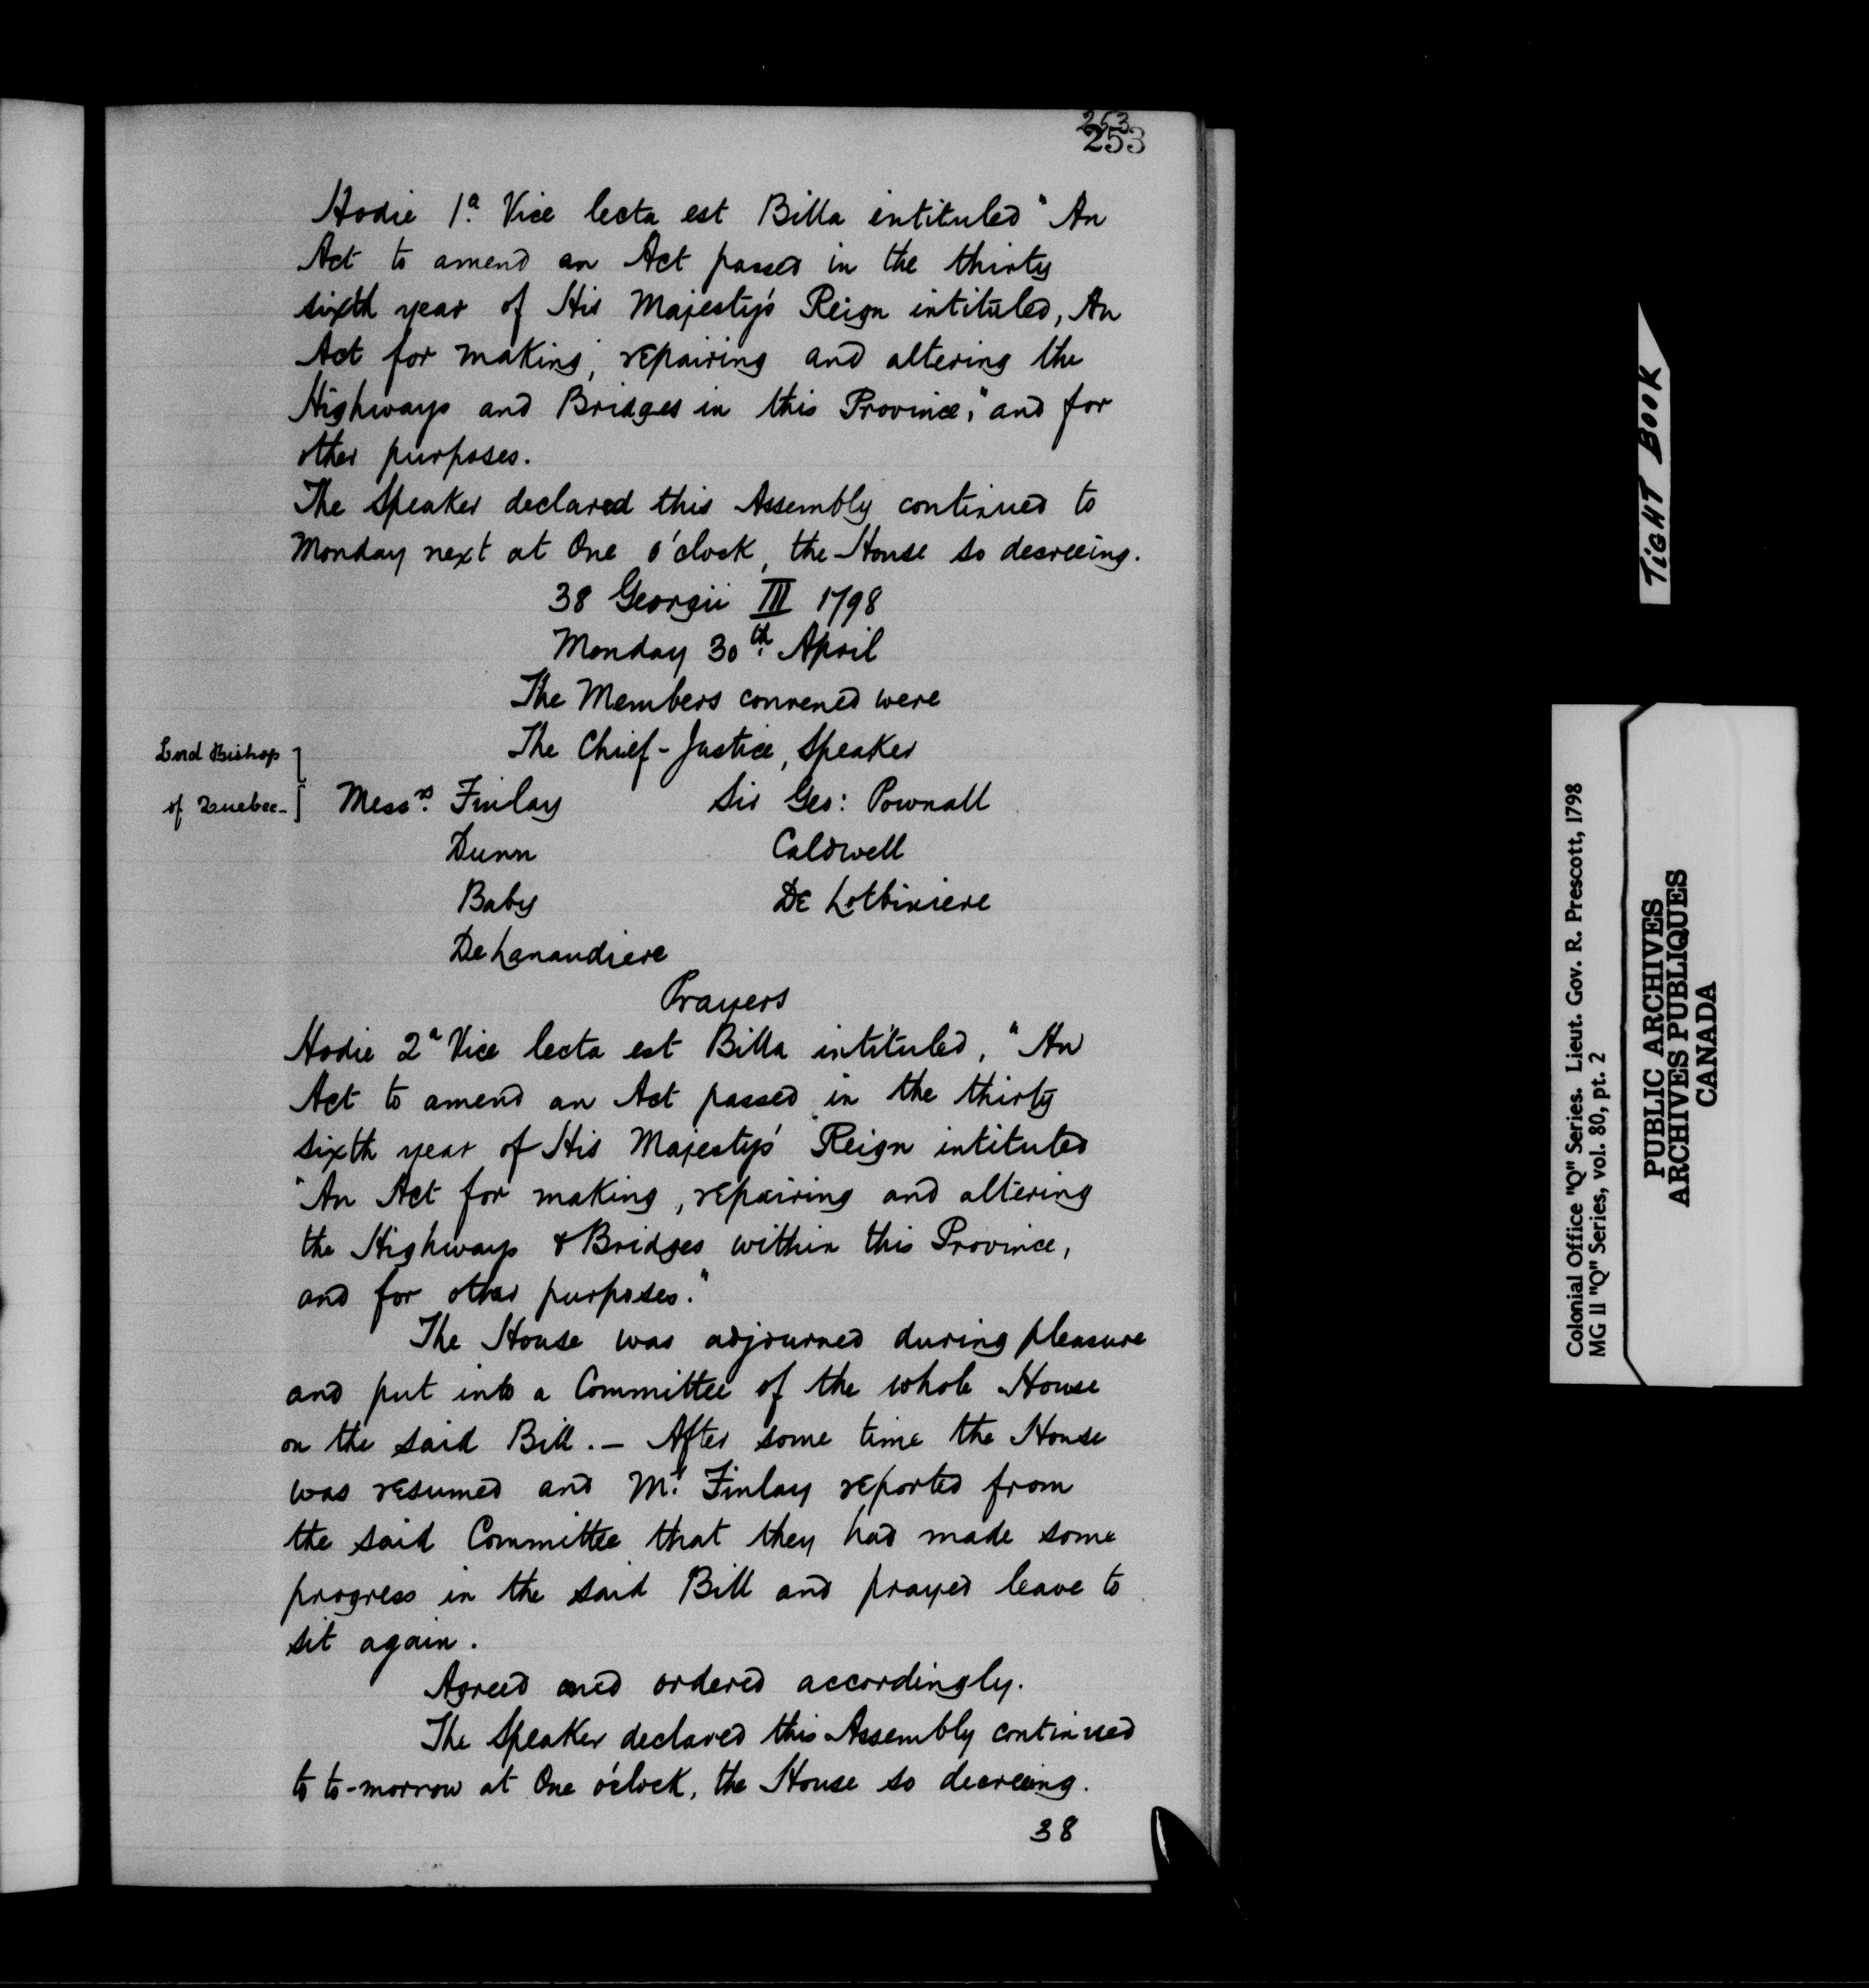 253
253
Hodie 1a. Vice lecta est Billa intituled "An
Act to amend an Act passed in the thirty
sixth year of His Majesty's Reign intituled, An
Act for making, repairing and altering the
Highways and Bridges in this Province," and for
other purposes.
The Speaker declared this Assembly continued to
Monday next at One o'clock, the House so decreeing.
38 Georgii III 1798
Monday 30th. April
The Members convened were
The Chief-Justice, Speaker
Lord Bishop
of Quebec-
Messrs. Finlay Sir Geo: Pownall
Dunn Caldwell
Baby De Lotbiniere
De Lanaudiere
Prayers
Hodie 2a Vice lecta est Billa intituled, "An
Act to amend an Act passed in the thirty
sixth year of His Majesty's Reign intituled
"An Act for making, repairing and altering
the Highways & Bridges within this Province,
and for other purposes."
The House was adjourned during pleasure
and put into a Committee of the whole House
on the said Bill. - After some time the House
was resumed and Mr. Finlay reported from
the said Committee that they had made some
progress in the said Bill and prayed leave to
sit again.
Agreed and ordered accordingly.
The Speaker declared this Assembly continued
to to-morrow at One o'clock, the House so decreeing.
38
TIGHT BOOK
Colonial Office "Q" Series. Lieut. Gov. R. Prescott, 1798
MG 11 "Q" Series, vol. 80, pt. 2
PUBLIC ARCHIVES
ARCHIVES PUBLIQUES
CANADA